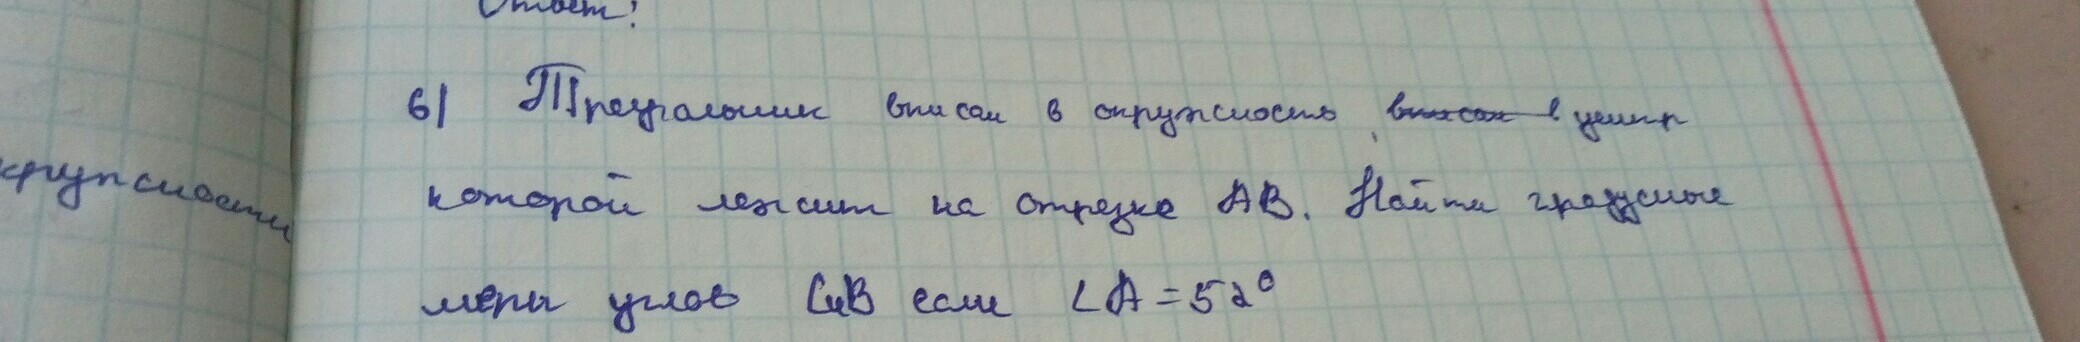 Ответ:
6) Треугольник вписан в окружность, вписан в центр
которой лежит на отрезке AB. Найти градусные
меры углов C и B если ∠A = 52°
окружности